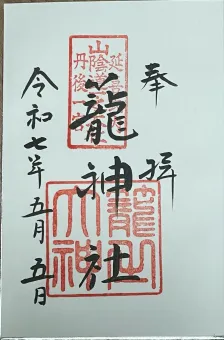 奉拝
延喜式
山陰道一
丹後一宮
籠神社
籠之
大神
令和七年五月五日